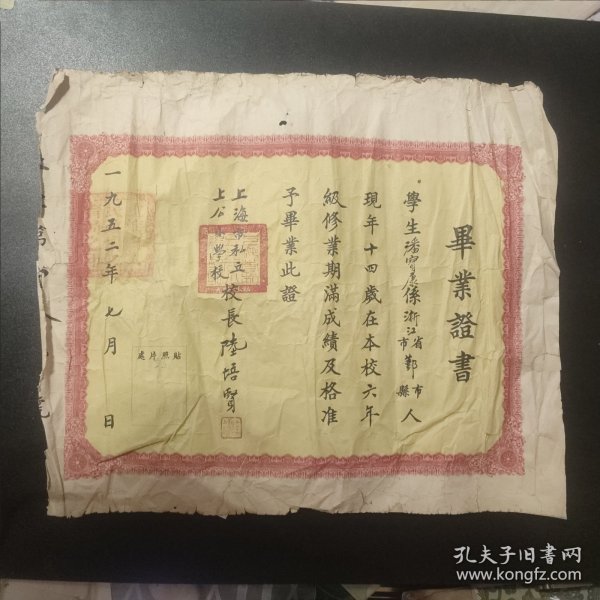 畢業證書
學生潘寶慶係浙江省市鄞市縣人
現年十四歲在本校六年
級修業期滿成績及格准
予畢業此證
上海市私立
上公小學校
校長陸培賢
一九五二年七月 日
貼照片處
孔夫子旧书网
www.kongfz.com